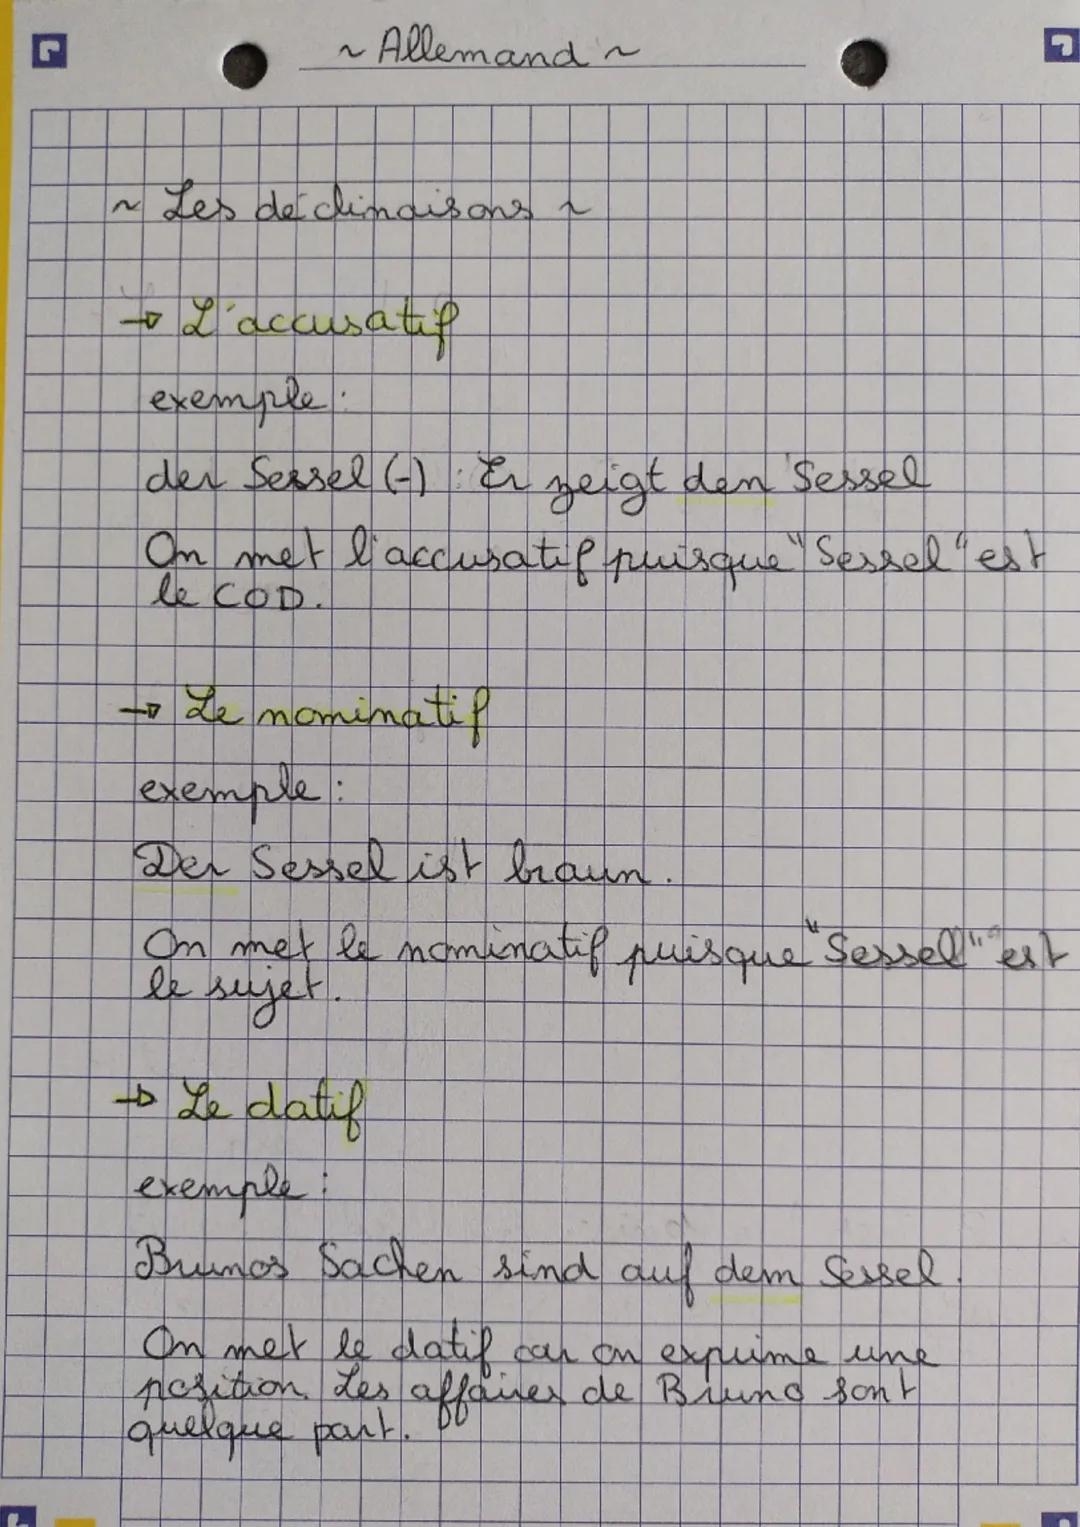 ~ Allemand ~
~ Les déclinaisons ~
→ L'accusatif
exemple :
der Sessel (-) : Er zeigt den Sessel
On met l'accusatif puisque "Sessel" est
le COD.
→ Le nominatif
exemple :
Der Sessel ist braun.
On met le nominatif puisque "Sessel" est
le sujet.
→ Le datif
exemple :
Brunos Sachen sind auf dem Sessel.
On met le datif car on exprime une
position. Les affaires de Bruno sont
quelque part.